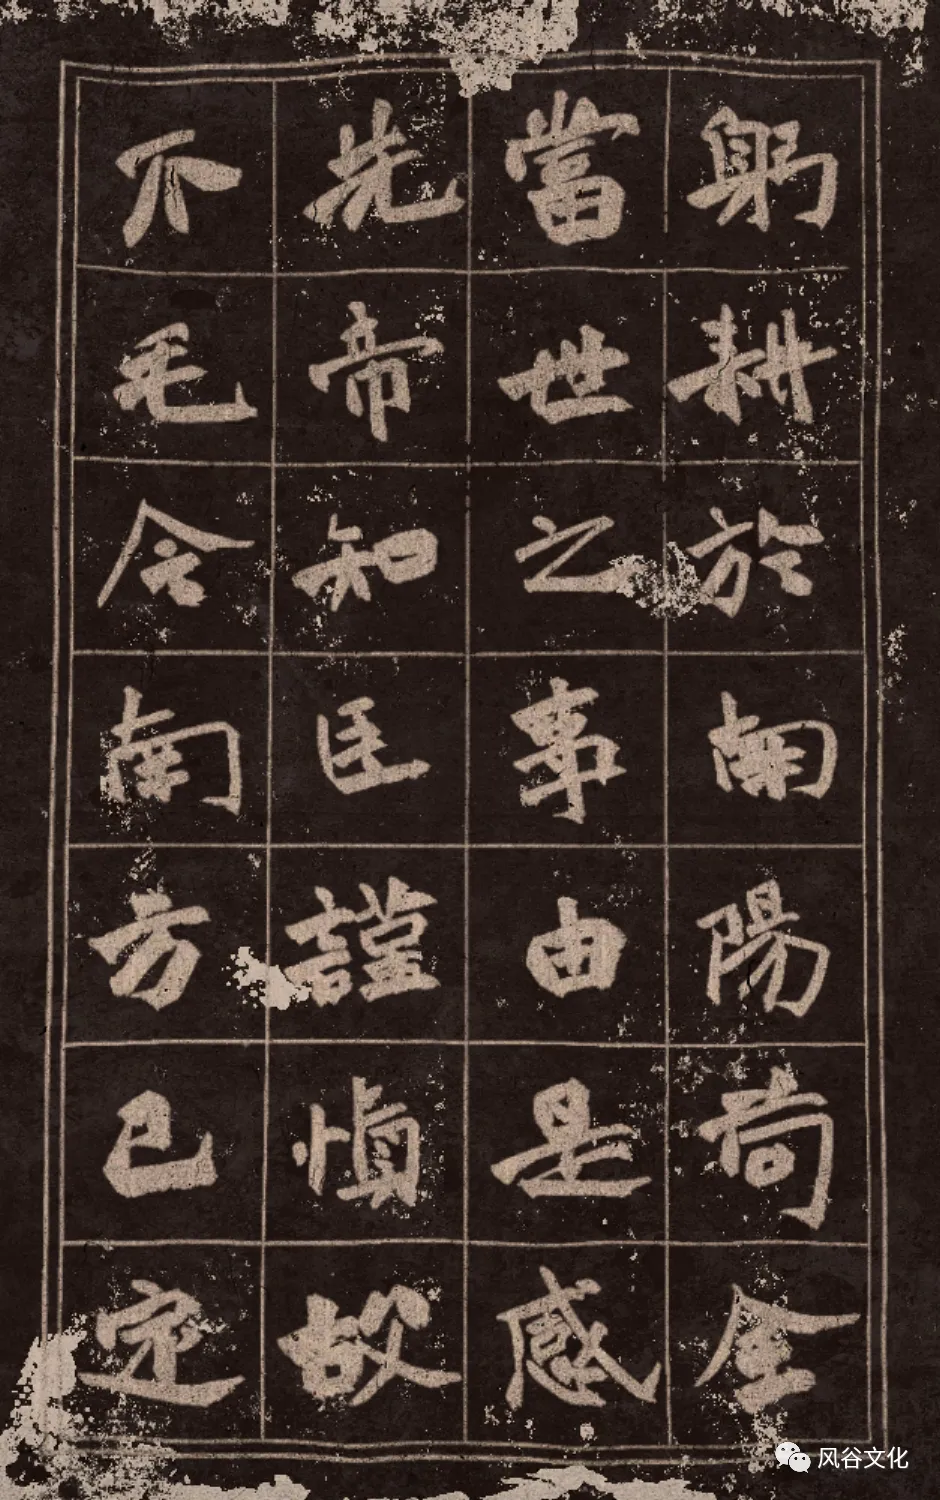 躬耕於南陽苟全
當世之事由是感
先帝知臣謹慎故
不毛令南方已定
风谷文化